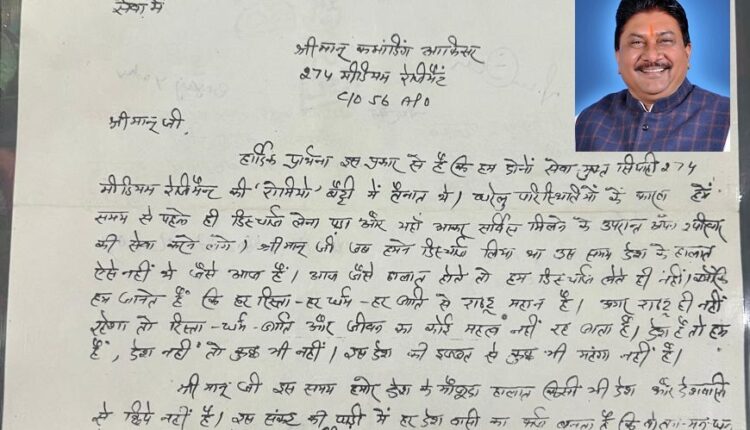 सेवा में
श्रीमान् कमांडिंग आफिसर
274 मीडियम रेजीमैंट
C/O 56 APO
श्रीमान् जी,
हार्दिक प्रार्थना इस प्रकार से है कि हम दोनों सेवा मुक्त सिपाही 274
मीडियम रेजिमैन्ट की 'रोमियो' बैट्री में तैनात थे। घरेलु परिस्थितियों के कारण हमें
समय से पहले ही डिस्चार्ज लेना पड़ा और यहाँ आकर सर्विस मिलने के उपरान्त अपने परिवार
की सेवा करने लगे। श्रीमान् जी जब हमने डिस्चार्ज लिया था उस समय देश के हालात
ऐसे नहीं थे जैसे आज हैं। आज जैसे हालात होते तो हम डिस्चार्ज लेते ही नहीं। क्योंकि
हम जानते हैं कि हर रिस्ता-हर धर्म-हर जाति से राष्ट्र महान है। अगर राष्ट्र ही नहीं
रहेगा तो रिस्ता-धर्म-जाति और जीवन का कोई महत्व नहीं रह जाता है। देश है तो हम
हैं, देश नहीं तो कुछ भी नहीं। इस देश की इज्जत से कुछ भी महंगा नहीं है।
श्रीमान् जी इस समय हमारे देश के मौजूदा हालात किसी भी देश और देशवासी
से छिपे नहीं है। इस संकट की घड़ी में हर देश वासी का फर्ज बनता है कि